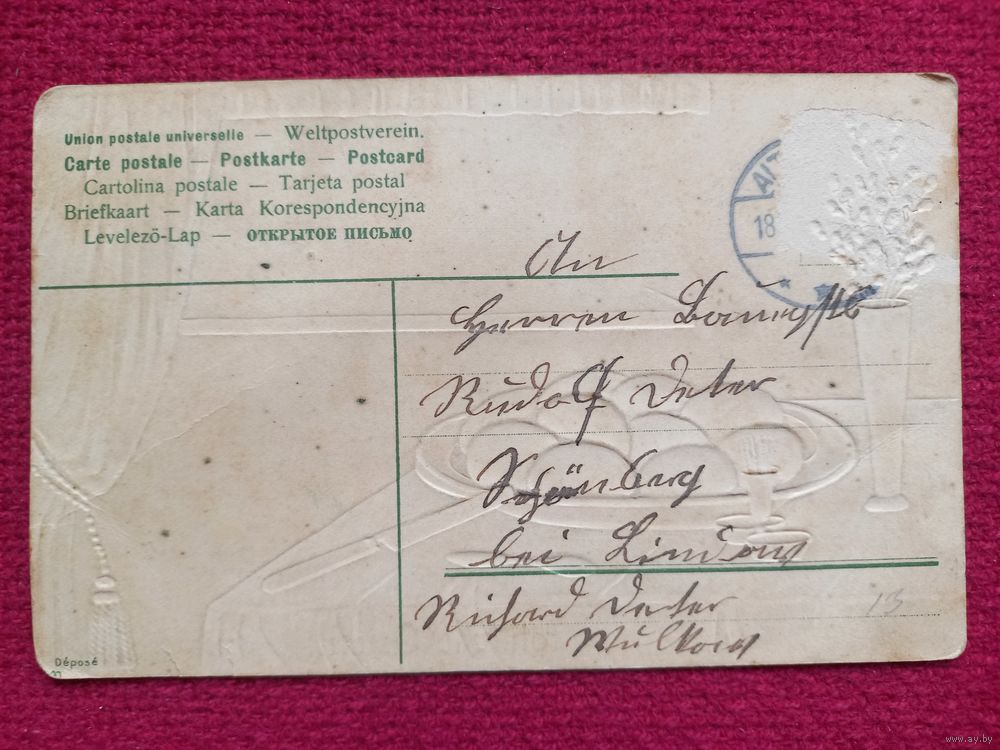 Union postale universelle — Weltpostverein.
Carte postale — Postkarte — Postcard
Cartolina postale — Tarjeta postal
Briefkaart — Karta Korespondencyjna
Levelező-Lap — ОТКРЫТОЕ ПИСЬМО
18
An
Herrn
Rudolf Deter
Schönberg
bei Lindow
Richard Deter
Wulkow
13
Déposé
www.ay.by